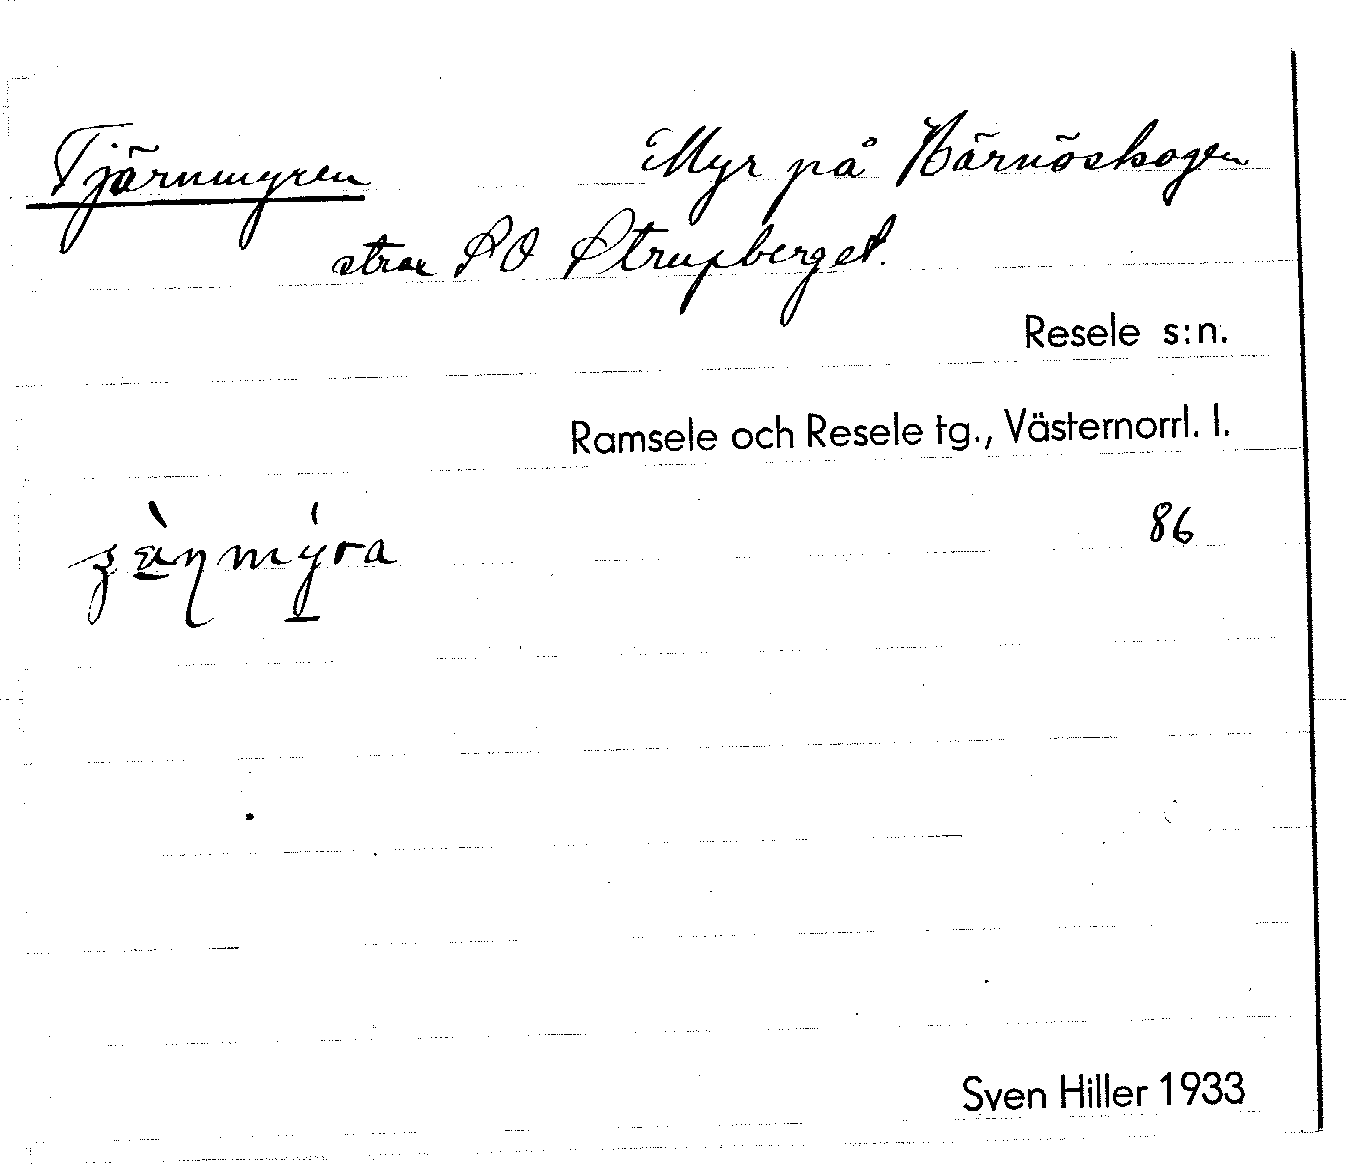 Tjärnmyren Myr på Härnöskogen
strax SO Strupberget.
Resele s:n.
Ramsele och Resele tg., Västernorrl. l.
86
Sven Hiller 1933